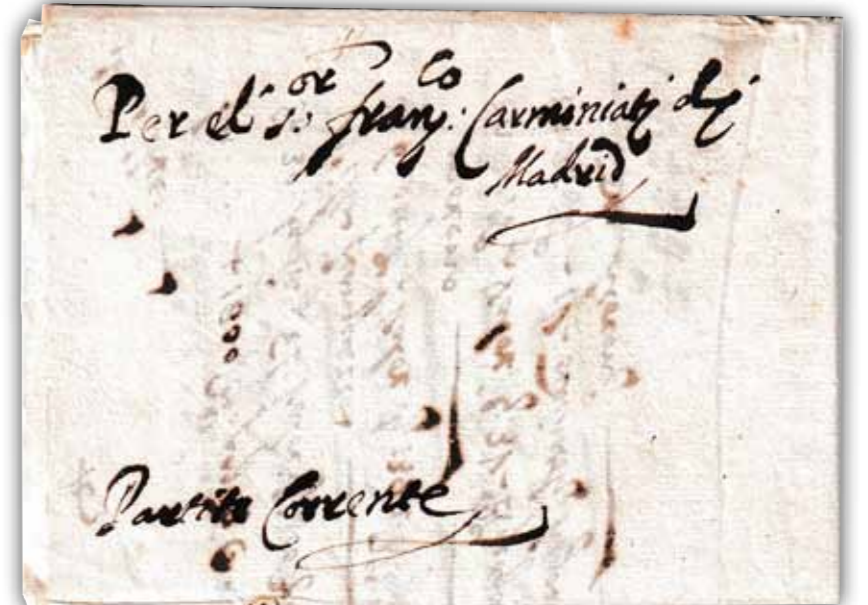 Per el s.or fran.co: Carminiatj dj
Madrid
Partita Corrente